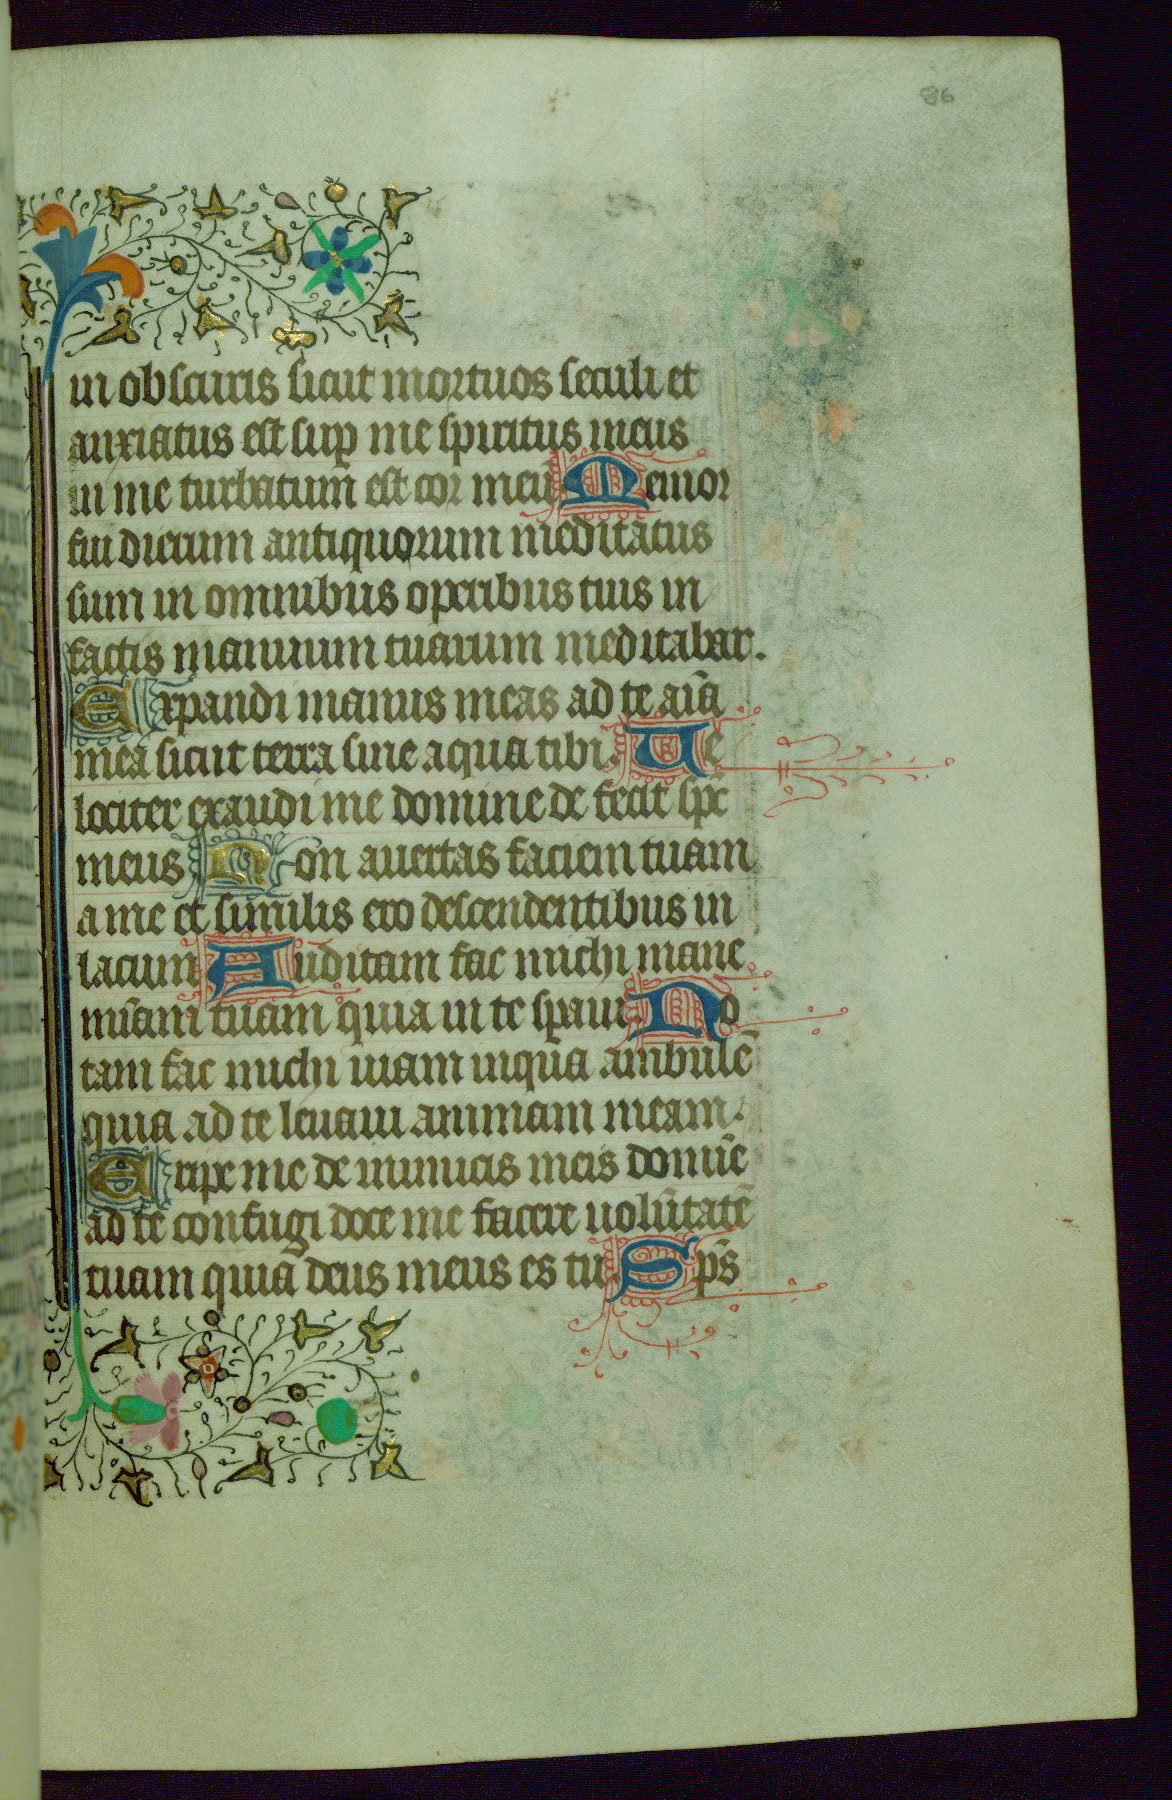 86
in obscuris sicut mortuos seculi et
anxiatus est sup me spiritus meus
in me turbatum est cor meū Memor
fui dierum antiquorum meditatus
sum in omnibus operibus tuis in
factis manuum tuarum meditabar.
Expandi manus meas ad te aīa
mea sicut terra sine aqua tibi. Ue
lociter exaudi me domine de fecit spc̄
meus Non auertas faciem tuam
a me et similis ero descendentibus in
lacum Auditam fac michi mane
mīam tuam quia in te speraui. No
tam fac michi uiam inqua ambulē
quia ad te leuaui animam meam.
Eripe me de inimicis meis domīe
ad te confugi doce me facere uolūtatē
tuam quia deus meus es tu. Sps̄